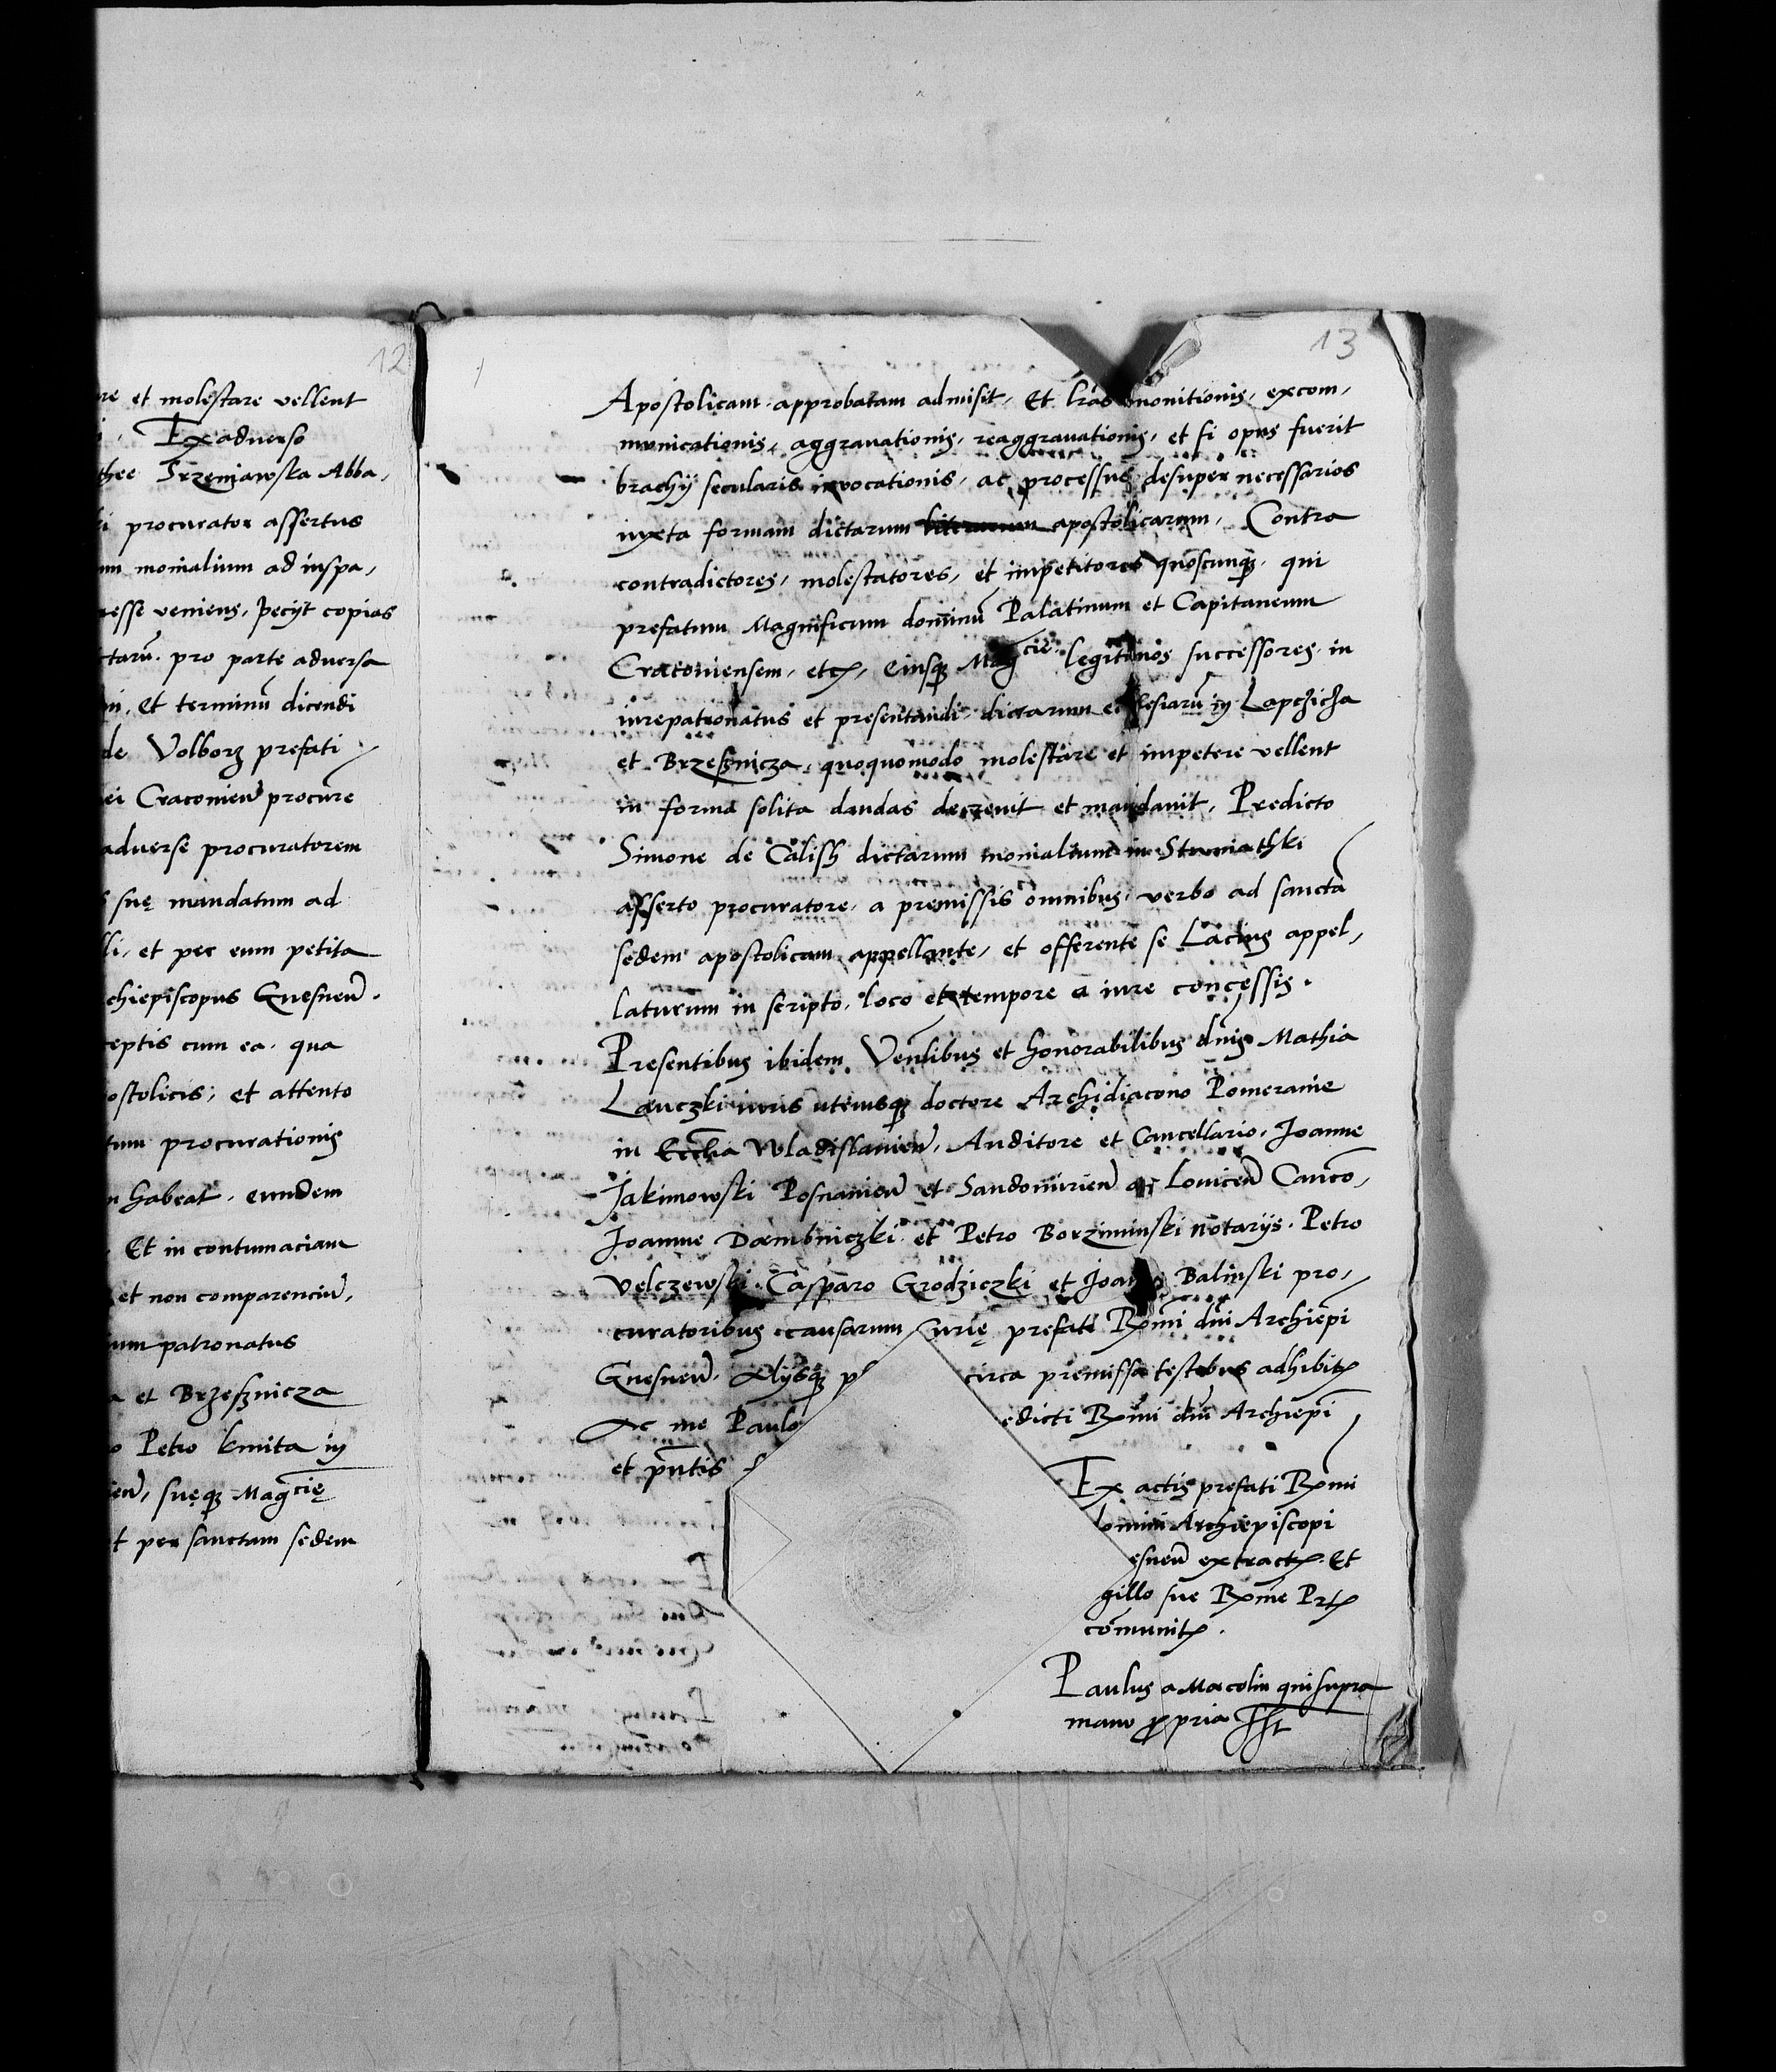 12
re et molestare vellent
Ex adverso
thee Srzeniawska Abba,
ki procurator assertus
um monialium ad inspa,
esse veniens, petijt copias
ctarũ pro parte adversa
ni, et terminũ dicendi
de Volborz prefati
ei Craconien̄ procure
adverse procuratorem
suę mandatum ad
li, et per eum petita
chiepiscopus Gnesnen̄.
ceptis cum ea, qua
ostolicis, et attento
tum procurationis
n habeat, eundem
Et in contumaciam
et non comparenciũ,
ium patronatus
a et Brzesznicza
o Petro kmita in
ien̄, suęqȝ Magcię
t per sanctam sedem
13
Apostolicam approbatam admisit, Et lr̄as monitionis, excom,
municationis, aggravationis, reaggravationis, et si opus fuerit
brachij secularis invocationis, ac processus desuper necessarios
iuxta formam dictarum literarum apostolicarum, Contra
contradictores, molestatores, et impetitores quoscunqȝ, qui
prefatum Magnificum dominũ Palatinum et Capitaneum
Cracoviensem, etc, eiusqȝ Magcie legitimos successores, in
iurepatronatus et presentandi dictarum ecclesiarũ in Lapczicza
et Brzesznicza, quoquomodo molestare et impetere vellent
in forma solita dandas decrevit et mandavit, Predicto
Simone de Calish dictarum monialium in Staniathki
asserto procuratore, a premissis omnibus, verbo ad sanctā
sedem apostolicam appellante, et offerente se Lacius appel,
laturum in scripto, loco et tempore a iure concessis.
Presentibus ibidem Ven̄libus et honorabilibus dn̄is Mathia
Lanczki iuris utriusqȝ doctore Archidiacono Pomeranie
in Eccl̄ia Wladislavien̄, Auditore et Cancellario, Joanne
Jakimowski Posnanien̄ et Sandomirien̄ ac Lovicen̄ Canco,
Joanne Dambniczki et Petro Borziminski notarijs, Petro
Velczewski, Casparo Grodziczki et Joanne Balinski pro,
curatoribus causarum Curię prefati Rm̄i dn̄i Archiēpi
Gnesnen̄, Alijsqȝ p circa premissa testibus adhibit
Ac me Paulo edicti Rm̄i dn̄i Archiēpi
et pn̄tis
Ex actis prefati Rm̄i
domini Archiepiscopi
esnen̄ extract. Et
gillo sue Rm̄e Pr̄t
com̄unit.
Paulus a Macolin qui supra
manu propria sst